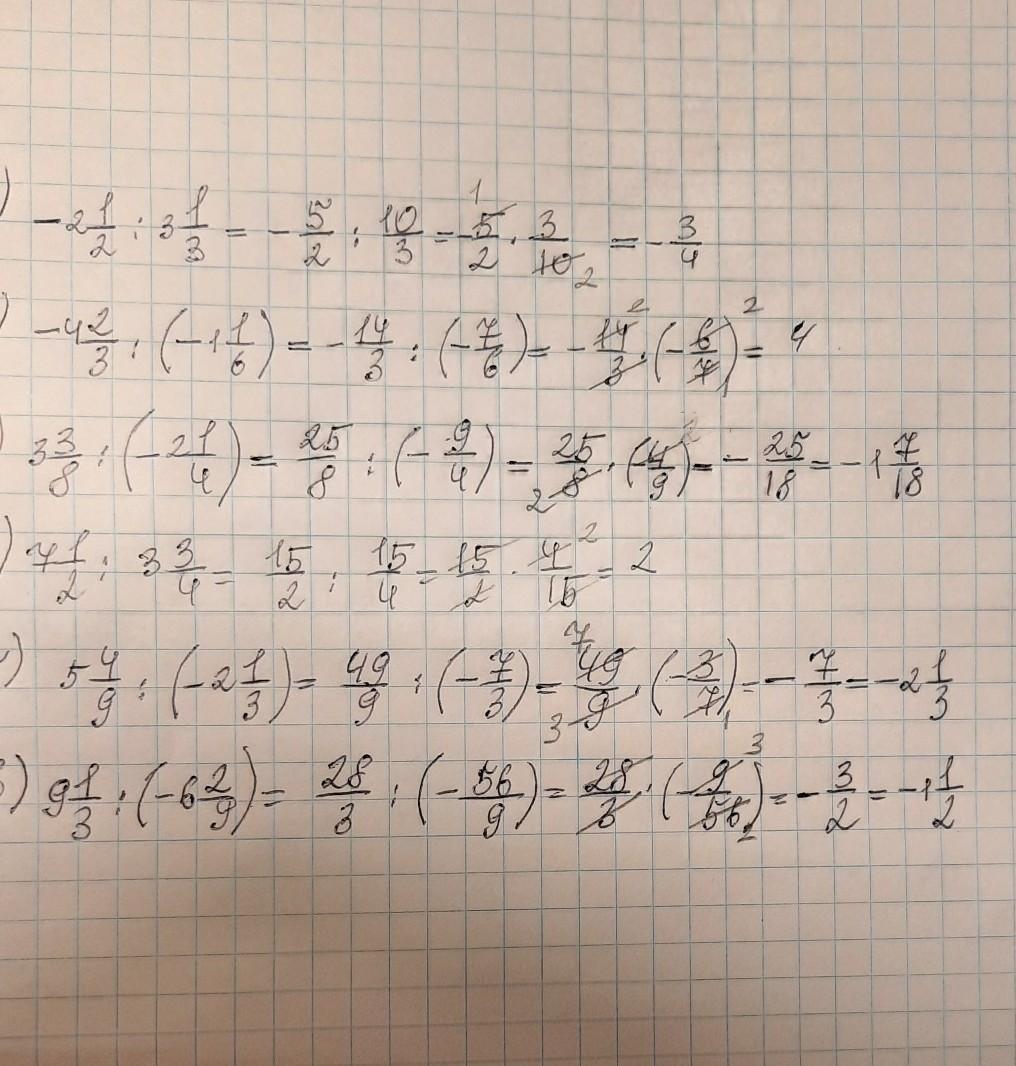 ) -2 1/2 : 3 1/3 = - 5/2 : 10/3 = - 5/2 · 3/10 = - 3/4
) -4 2/3 : (-1 1/6) = - 14/3 : (- 7/6) = - 14/3 · (- 6/7) = 4
) 3 3/8 : (-2 1/4) = 25/8 : (- 9/4) = 25/8 · (- 4/9) = - 25/18 = -1 7/18
) 7 1/2 : 3 3/4 = 15/2 : 15/4 = 15/2 · 4/15 = 2
) 5 4/9 : (-2 1/3) = 49/9 : (- 7/3) = 49/9 · (- 3/7) = - 7/3 = -2 1/3
) 9 1/3 : (-6 2/9) = 28/3 : (- 56/9) = 28/3 · (- 9/56) = - 3/2 = -1 1/2